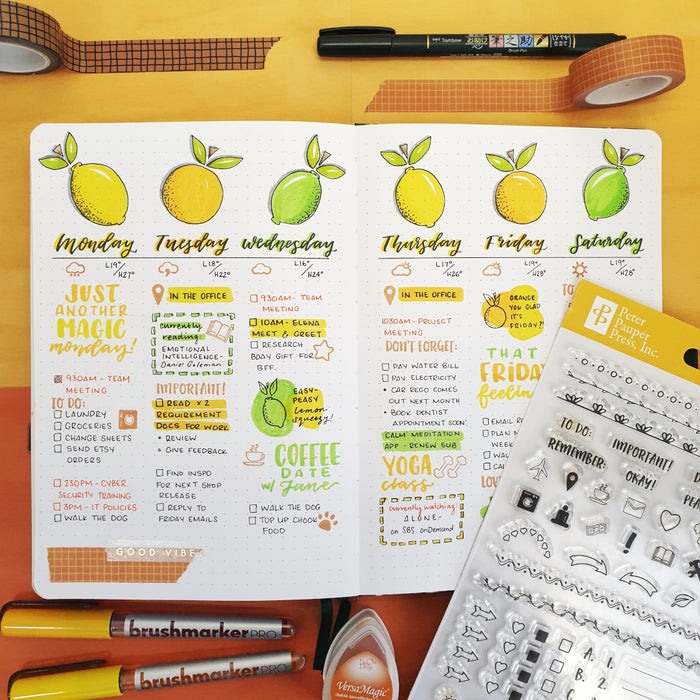 Tombow
Brush Pen
Monday
L19°
/H27°
JUST
ANOTHER
MAGIC
monday!
930AM - TEAM
MEETING
TO DO:
LAUNDRY
GROCERIES
CHANGE SHEETS
SEND ETSY
ORDERS
230PM - CYBER
SECURITY TRAINING
3PM - IT POLICIES
WALK THE DOG
GOOD VIBE
Tuesday
L18°
/H22°
IN THE OFFICE
currently
reading:
EMOTIONAL
INTELLIGENCE-
Daniel Goleman
IMPORTANT!
READ x2
REQUIREMENT
DOCS FOR WORK
• REVIEW
• GIVE FEEDBACK
FIND INSPO
FOR NEXT SHOP
RELEASE
REPLY TO
FRIDAY EMAILS
wednesday
L16°
/H24°
930AM - TEAM
MEETING
10AM - ELENA
MEET & GREET
RESEARCH
BDAY GIFT FOR
BFF.
EASY-
PEASY
Lemon
squeezy!
COFFEE
DATE
w/ Jane
WALK THE DOG
TOP UP CHOOK
FOOD
Thursday
L17°
/H26°
IN THE OFFICE
1030AM - PROJECT
MEETING
DON'T FORGET:
PAY WATER BILL
PAY ELECTRICITY
• CAR REGO COMES
OUT NEXT MONTH
• BOOK DENTIST
APPOINTMENT SOON
CALM MEDITATION
APP - RENEW SUB
YOGA
class
currently watching:
ALONE-
on SBS onDemand
Friday
L19°
/H28°
ORANGE YOU
GLAD
IT'S
FRIDAY?!
THAT
FRIDAY
feeling
EMAIL
PLAN
WEEK
Saturday
L19°
/H25°
Peter
Pauper
Press, Inc.
TO DO:
IMPORTANT!
REMEMBER:
OKAY!
A.
B.
1.
2.
brushmarkerPRO
brushmarkerPRO
VersaMagic